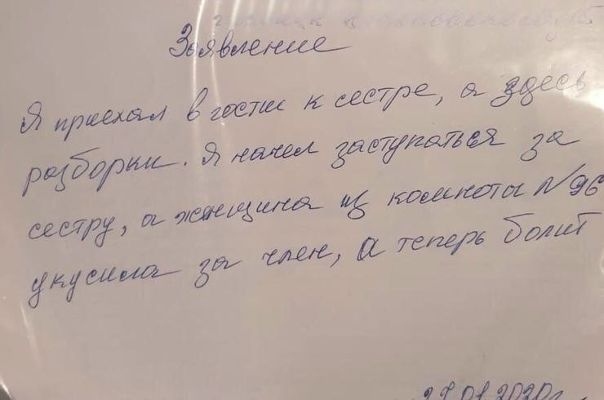 Заявление
Я приехал в гости к сестре, а здесь
разборки. Я начел заступаться за
сестру, а женщина из комноты N 96
укусила за член, а теперь болит
27.01.2020г.